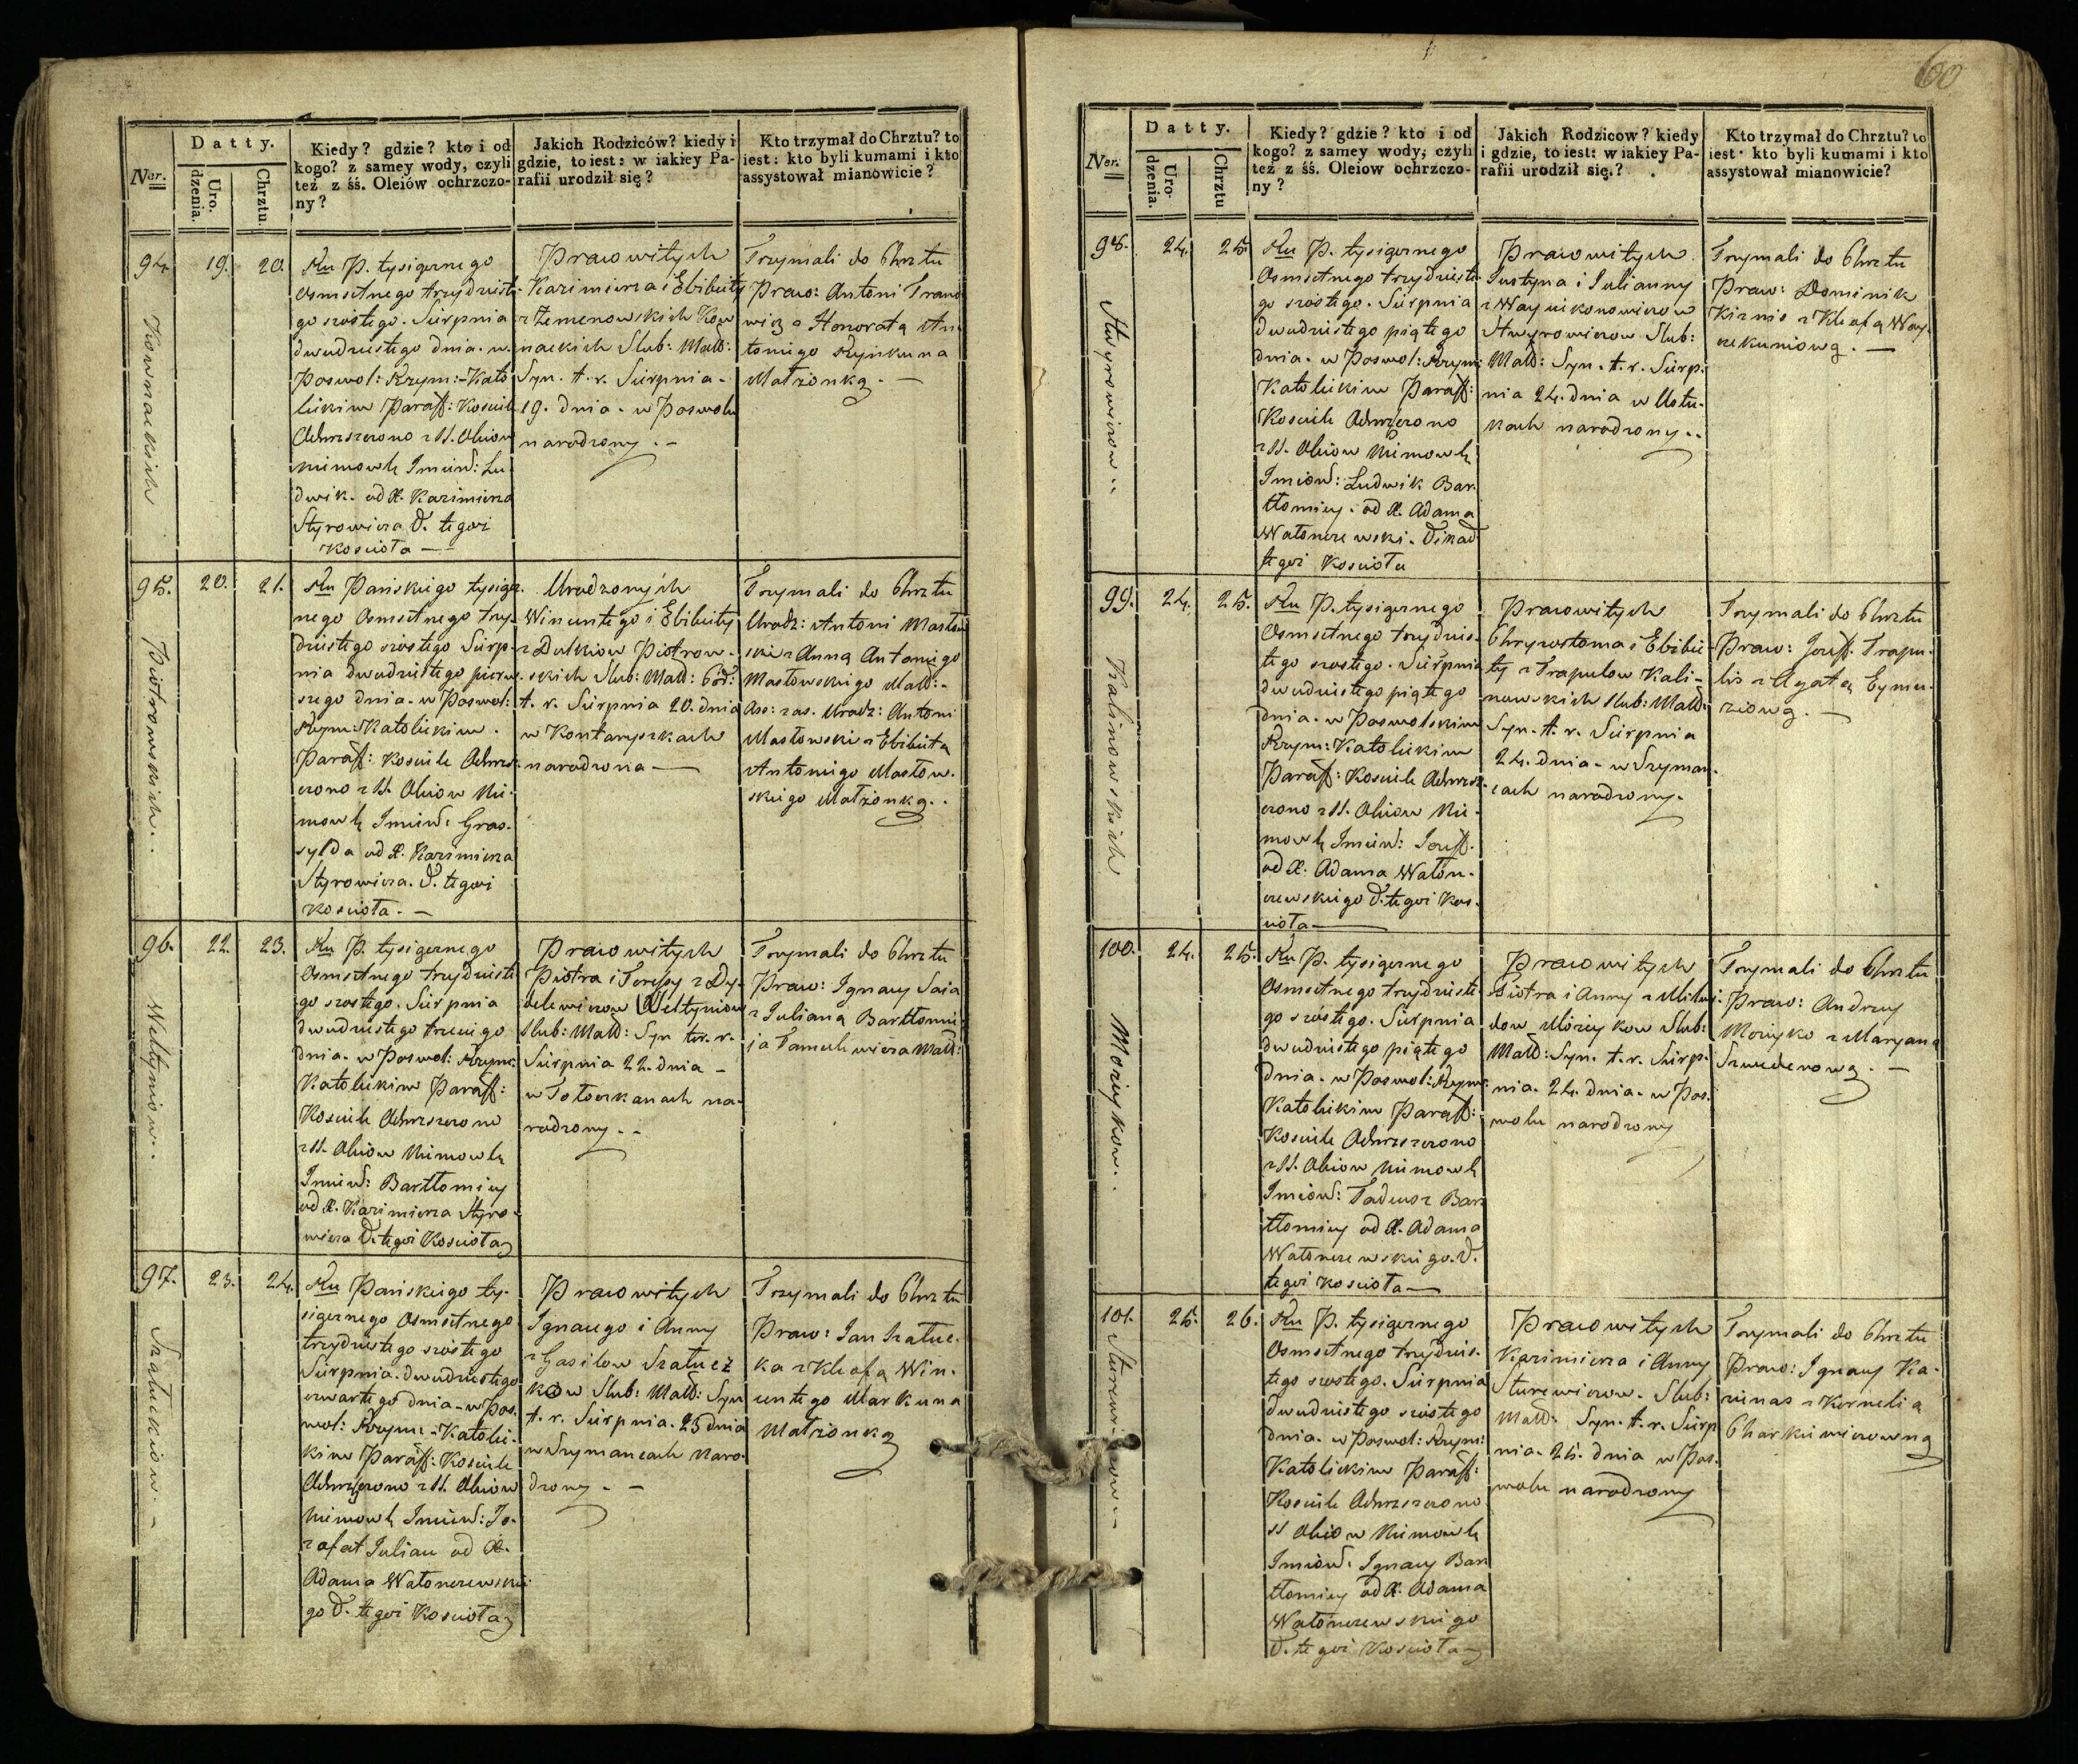 60
Datty.
Nar.
Uro-
dzenia.
Chrztu.
Kiedy? gdzie? kto i od
kogo? z samey wody, czyli
też z śś. Oleiów ochrzczo-
ny?
Jakich Rodziców? kiedy i
gdzie, to iest: w iakiey Pa-
rafii urodził się?
Kto trzymał do Chrztu? to
iest: kto byli kumami i kto
assystował mianowicie?
94.
Kownackich
19.
20.
Ru P. tysiącznego
Osmsetnego trzydzieste-
go szóstego. Sierpnia
dwudziestego dnia. w.
Poswol: Rzym:-Kato
lickim Paraff: Kosciele
Ochrzszczono z SS. Oleiow
Niemowle Imien: Lu
dwik. od X. Kazimierza
Styrowicza D. tegoż
Koscioła —
Prawowitych
Kazimierza i Elżbiety
z Zemenowskich Kow
nackich Slub: Małż:
Syn. t. r. Sierpnia.
19. dnia. w Poswolu
narodzony. -
Trzymali do Chrztu
Praw: Antoni Frano
wicz z Honoratą An
toniego Rynkuna
Małżonką. —
95.
Piotrowskich.
20.
21.
Ru Pańskiego tysiącz
nego Osmsetnego trzy-
dziestego szóstego Sierp-
nia dwudziestego pierw
szego dnia. w Poswol:
Rzym: Katolickim.
Paraff: Kosciele Ochrzsz
czono z SS. Oleiow Nie-
mowle Imien: Gras-
sylda od X. Kazimierza
Styrowicza. D. tegoż
Kosciola. —
Urodzonych
Wincentego i Elżbiety
z Dulkiow Piotrow-
skich Slub: Małż: Cór:
t. r. Sierpnia 20. dnia
w Kontaryszkach
narodzona —
Trzymali do Chrztu
Urodz: Antoni Masłow
ski z Anną Antoniego
Masłowskiego Małż:-
Ass: zas. Urodz: Antoni
Masłowski z Elżbietą
Antoniego Masłow-
skiego Małżonką..
96.
Weltyniow..
22.
23.
Ru P. tysiącznego
Osmsetnego trzydzieste
go szóstego. Sierpnia
dwudziestego trzeciego
dnia. w Poswol: Rzym:
Katolickim Paraff:
Kosciele Ochrzszczono
z SS. Oleiow Niemowle
Imien: Bartłomiey
od X. Kazimierza Styro-
wicza D. tegoż Kosciola
Prawowitych
Piotra i Teressy z Dy-
delewiczow Weltyniow
Slub: Małż: Syn ter. r.
Sierpnia 22. dnia -
w Tołoczkanach na-
rodzony. -
Trzymali do Chrztu
Praw: Ignacy Saia
z Julianą Bartłomie
ja Tamulewicza Małż:
97.
Szatuckiow. -
23.
24.
Ru Pańskiego ty-
siącznego Osmsetnego
trzydziestego szóstego
Sierpnia. dwudziestego
czwartego dnia. w Pos-
wol: Rzym:-Katolic-
kim Paraff: Kosciele
Ochrzszczono z SS. Oleiow
Niemowle Imien: Jo-
zafat Julian od X.
Adama Watonczewskie
go D. tegoż Kosciola
Prawowitych
Ignacego i Anny
z Gasilow Szatucz
kow Slub: Małż: Syn
t. r. Sierpnia. 23 dnia
w Szymancach Naro-
dzony. -
Trzymali do Chrztu
Praw: Jan Szatuc-
ka z Kleofą Win-
centego Markuna
Małżonką
Datty.
Nar.
Uro-
dzenia.
Chrztu
Kiedy? gdzie? kto i od
kogo? z samey wody, czyli
też z śś. Oleiow ochrzczo-
ny?
Jakich Rodzicow? kiedy
i gdzie, to iest: w iakiey Pa-
rafii urodził się.?
Kto trzymał do Chrztu? to
iest kto byli kumami i kto
assystował mianowicie?
98.
Awyrowiczow..
24.
25.
Ru P. tysiącznego
Osmsetnego trzydzieste-
go szóstego. Sierpnia
dwudziestego piątego
dnia. w Poswol: Rzym:
Katolickim Paraff:
Kosciele Ochrzczono
z SS. Oleiow Niemowle
Imion: Ludwik Bar
tłomiey. od X. Adama
Watonczewski. Dziekad
tegoż Kosciola
Prawowitych
Justyna i Julianny
z Waynikonowiczow
Awyrowiczow Slub:
Małż: Syn. t. r. Sierp-
nia 24. dnia w Ustu-
kach narodzony..
Trzymali do Chrztu
Praw: Dominik
Kiznis z Kleofą Way-
czekuniową. —
99.
Kalinowskich
24.
25.
Ru P. tysiącznego
Osmsetnego trzydzies-
tego szóstego. Sierpnia
dwudziestego piątego
dnia. w Poswolskim
Rzym: Katolickim
Paraff: Kosciele Ochrzsz
czono z SS. Oleiow Nie-
mowle Imien: Joseff.
od X. Adama Waton-
czewskiego D. tegoż Kos-
ciola —
Prawowitych
Chryzostoma i Elżbie
ty z Trapulow Kali-
nowskich Slub: Małż:
Syn. t. r. Sierpnia
24. dnia. w Szyman-
cach narodzony.
Trzymali do Chrztu
Praw: Joseff Trapu-
lis z Agatą Eymu-
ziową. —
100.
Mozeykow.
24.
25.
Ru P. tysiącznego
Osmsetnego trzydzieste-
go szóstego. Sierpnia
dwudziestego piątego
dnia. w Poswol: Rzym:
Katolickim Paraff:
Kosciele Ochrzszczono
z SS. Oleiow Niemowle
Imion: Tadeusz Bar
tłomiey od X. Adama
Watonczewskiego. D.
tegoż Kosciola —
Prawowitych
Piotra i Anny z Milwi-
dow Mozeykow Slub:
Małż: Syn. t. r. Sierp-
nia. 24. dnia. w Pos-
wolu narodzony
Trzymali do Chrztu
Praw: Andrzey
Mozeyko z Maryaną
Szwederową. —
101.
25.
26.
Ru P. tysiącznego
Osmsetnego trzydzies-
tego szostego. Sierpnia
dwudziestego szóstego
dnia. w Poswol: Rzym:
Katolickim Paraff:
Kosciele Ochrzszczono
SS Oleiow Niemowle
Imion: Ignacy Bar
tłomiey od X. Adama
Watonczewskiego
D. tegoż Kosciola
Prawowitych
Kazimierza i Anny
Sturewiczow. Slub:
Małż: Syn. t. r. Sierp
nia. 25. dnia w Pos-
wolu narodzony
Trzymali do Chrztu
Praw: Ignacy Ka-
zinas z Kornelią
Charkiewiczowną